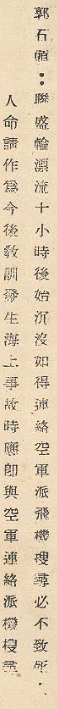 郭石頑：聯盛輪漂流十小時後始沉沒如得連絡空軍派飛機搜尋必不致死‥
人命請作為今後教訓發生海上事故時應卽與空軍連絡派機搜尋